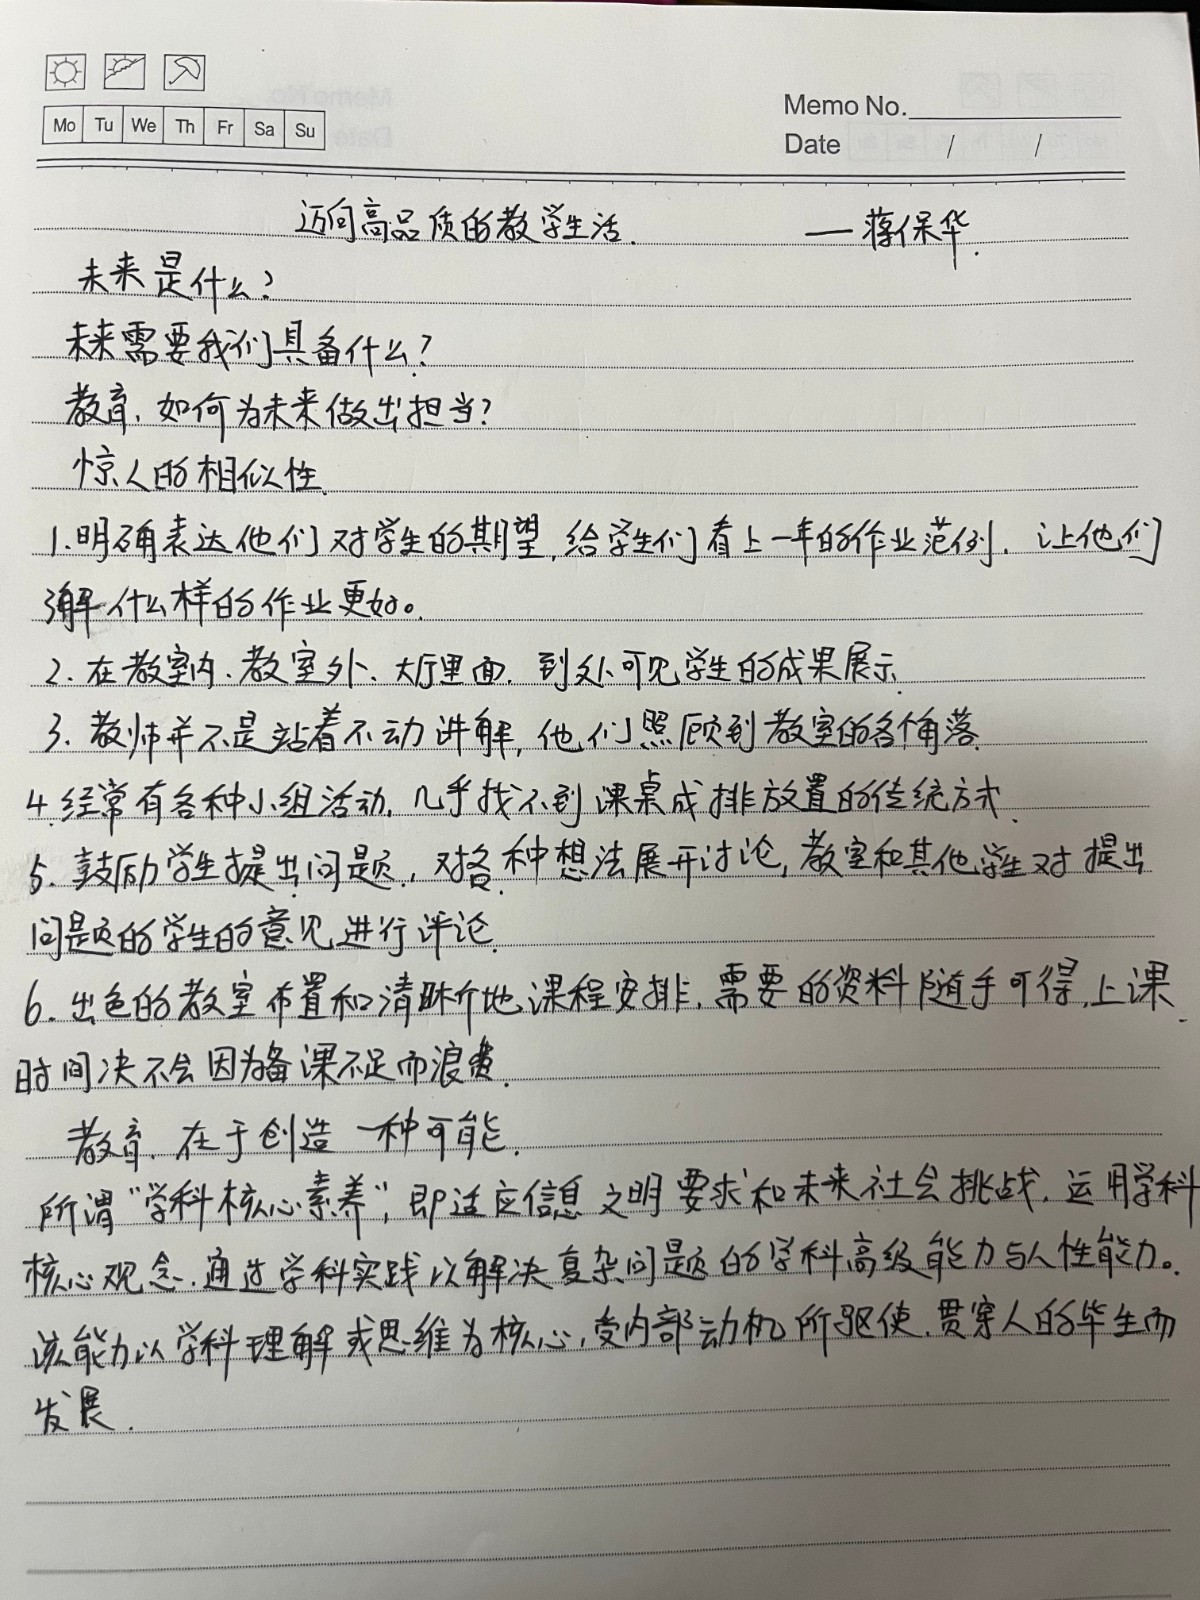 Mo Tu We Th Fr Sa Su
Memo No.
Date / /
迈向高品质的教学生活. —蒋保华.
未来是什么?
未来需要我们具备什么?
教育,如何为未来做出担当?
惊人的相似性.
1.明确表达他们对学生的期望,给学生们看上一年的作业范例,让他们
了解什么样的作业更好。
2.在教室内、教室外、大厅里面,到处可见学生的成果展示.
3.教师并不是站着不动讲解,他们照顾到教室的各个角落.
4.经常有各种小组活动,几乎找不到课桌成排放置的传统方式.
5.鼓励学生提出问题,对各种想法展开讨论,教室和其他学生对提出
问题的学生的意见进行评论.
6.出色的教室布置和清晰的课程安排,需要的资料随手可得,上课
时间决不会因为备课不足而浪费.
教育,在于创造一种可能.
所谓“学科核心素养”,即适应信息文明要求和未来社会挑战,运用学科
核心观念,通过学科实践以解决复杂问题的学科高级能力与人性能力。
该能力以学科理解或思维为核心,受内部动机所驱使,贯穿人的毕生而
发展.